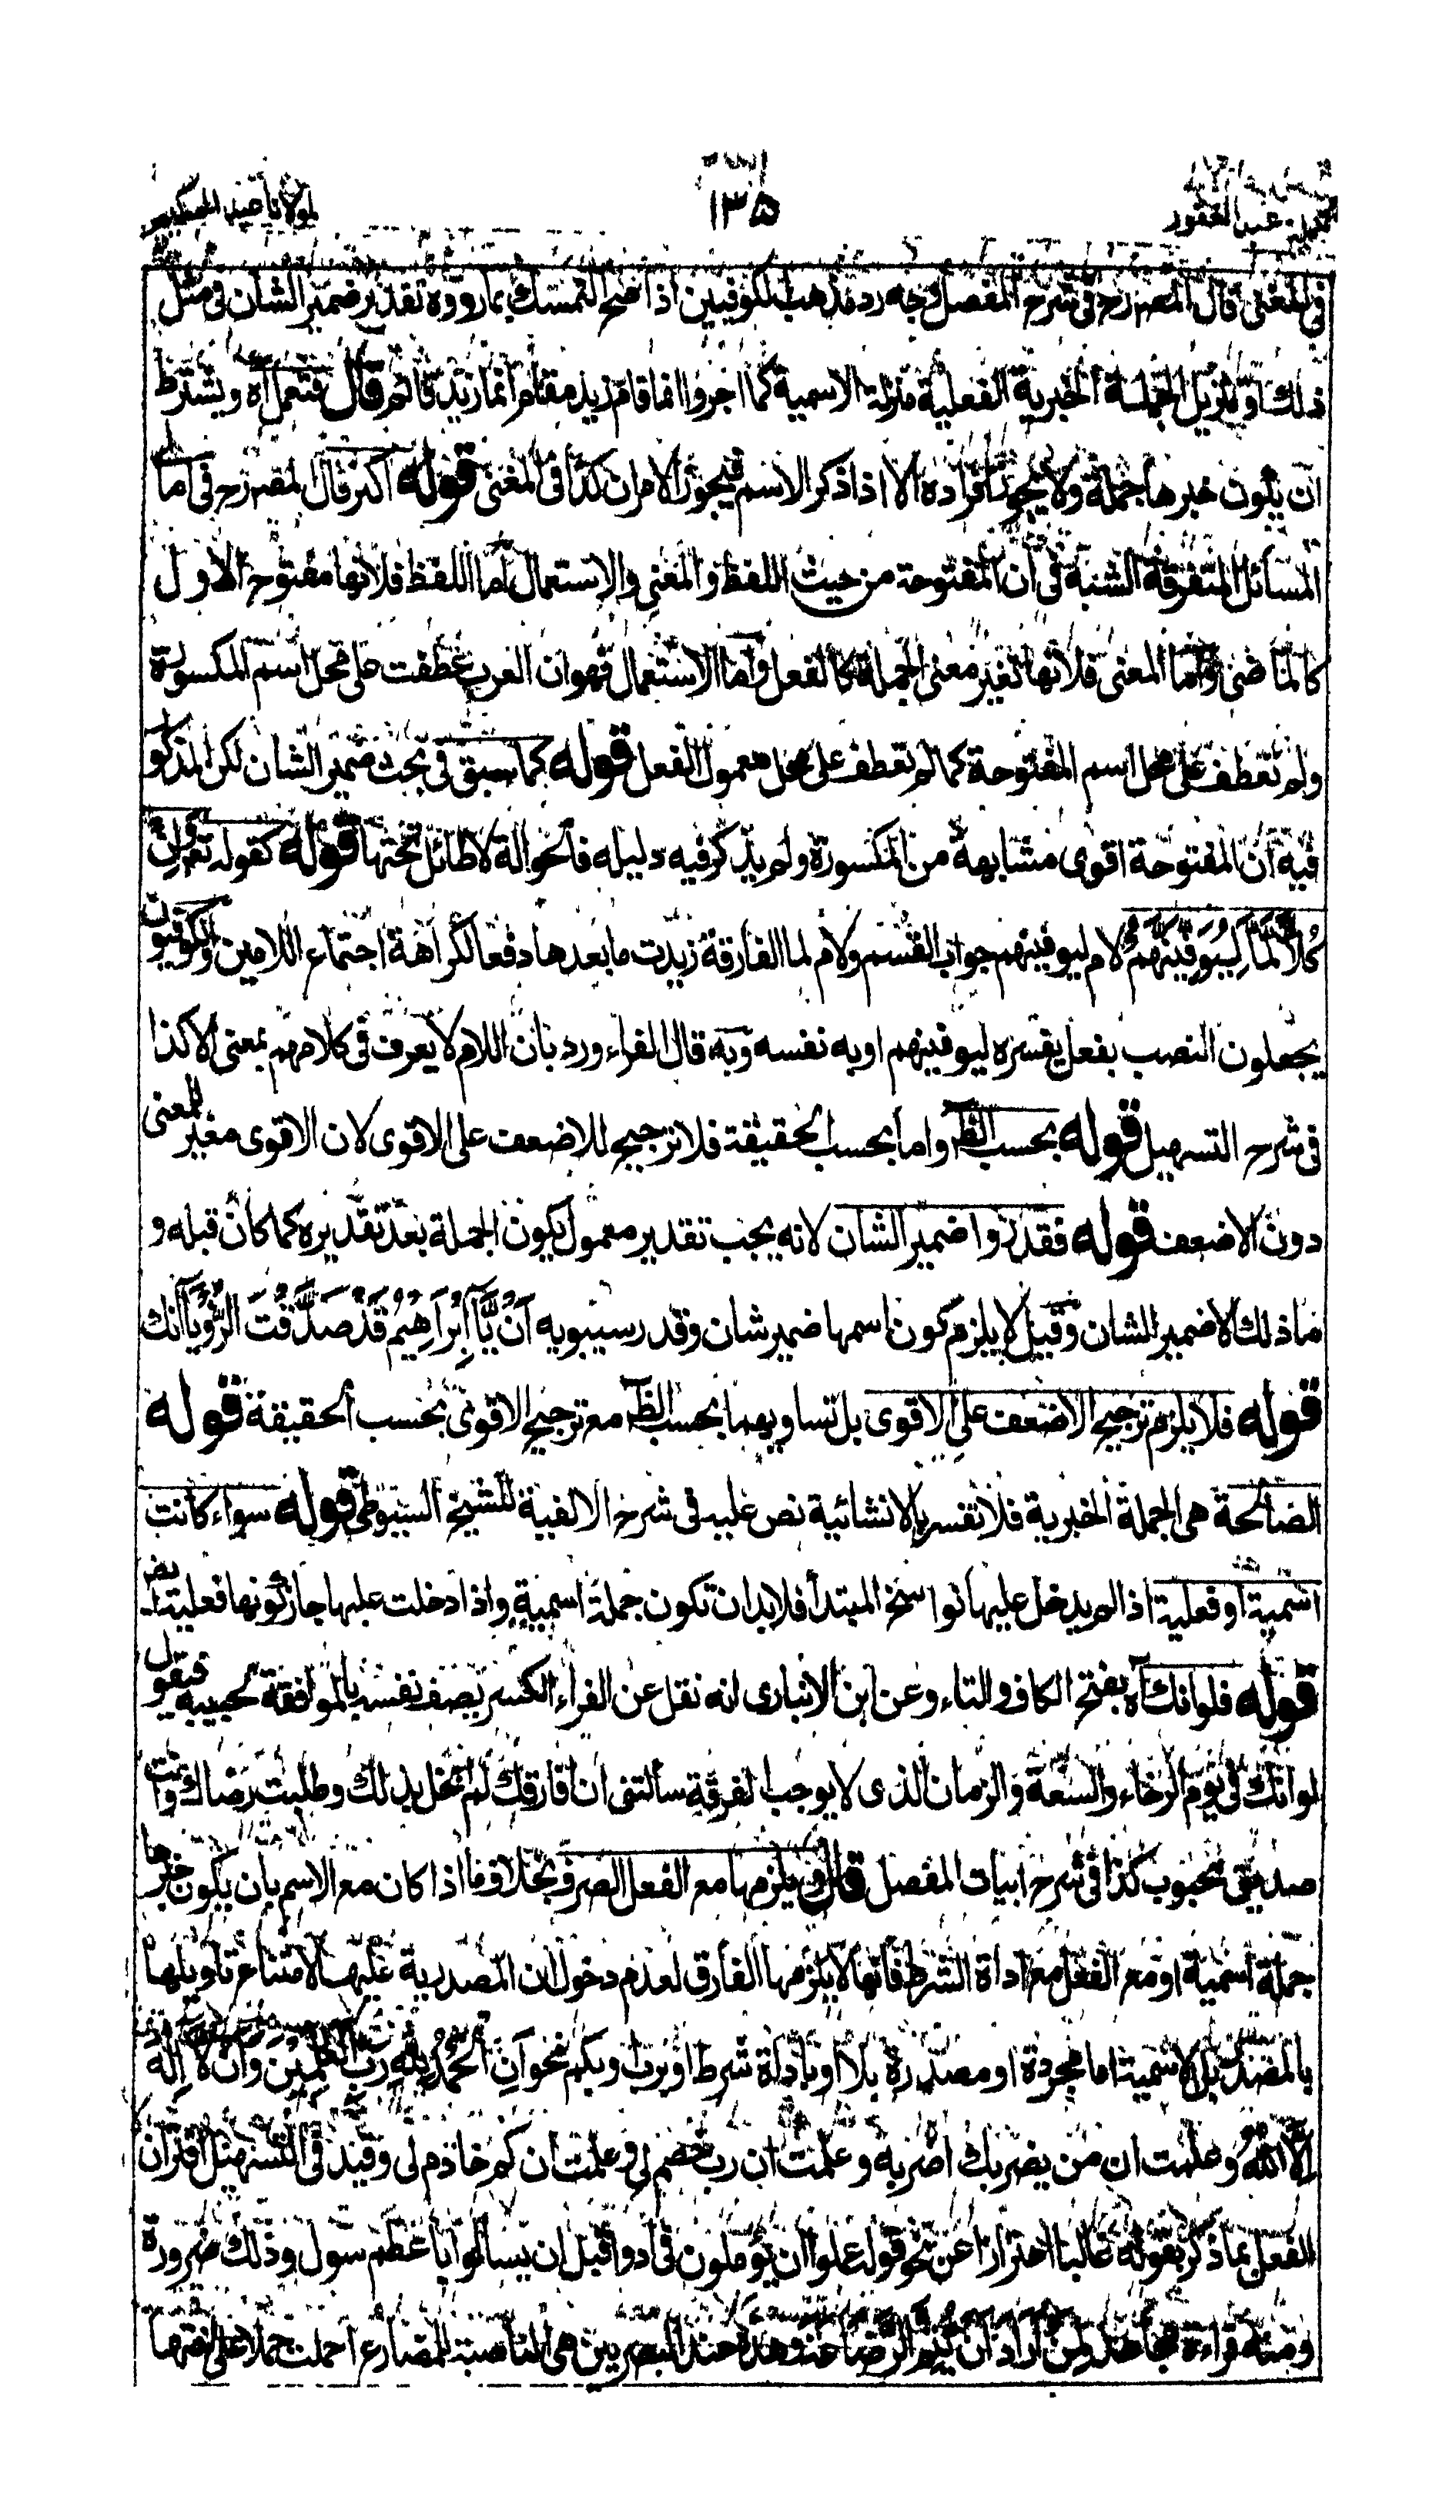 عبد الغفور
١٣٥
لمولانا عبد الحكيم
فى المغنى قال المصرح فى شرح المفصل وجه رد مذهب الكوفيين اذا صح التمسك بما رووه تقدير ضمير الشان فى مثل
ذلك او تنزيل الجملة الخبرية الفعلية منزلة الاسمية كما اجروا انما قام زيد مقام انما زيد قائم قال فتعمل آه ويشترط
ان يكون خبرها جملة ولا يجوز افراده الا اذا ذكر الاسم فيجوز الامران كذا فى المغنى قوله اكثر قال المصرح فى اما
المسائل المتفرقة الشبه فى ان المفتوحة من حيث اللفظ والمعنى والاستعمال اما اللفظ فلانها مفتوح الاول
كالماضى واما المعنى فلانها تغير معنى الجملة كالفعل واما الاستعمال فهو ان العرب عطفت على محل اسم المكسورة
ولم تعطف على محل اسم المفتوحة كما لم تعطف على محل معمول الفعل قوله كما سبق فى بحث ضمير الشان لكن المذكور
فيه ان المفتوحة اقوى مشابهة من المكسورة ولم يذكر فيه دليله فالحوالة لا طائل تحتها قوله كقوله تعالى وان
كلا لما ليوفينهم لام ليوفينهم جواب القسم ولام لما الفارقة زيدت ما بعدها دفعا لكراهة اجتماع اللامين والكوفيون
يجعلون النصب بفعل يفسره ليوفينهم او به نفسه وبه قال الفراء ورد بان اللام لا يعرف فى كلامهم بمعنى الا كذا
فى شرح التسهيل قوله بحسب الظ واما بحسب الحقيقة فلا ترجيح للاضعف على الاقوى لان الاقوى مغير المعنى
دون الاضعف قوله فقدروا ضمير الشان لانه يجب تقدير معمول يكون الجملة بعد تقديره كما كان قبله و
ما ذلك الا ضمير الشان وقيل لا يلزم كون اسمها ضمير شان وقدر سيبويه اَنْ يَّا اِبْرَاهِيْمُ قَدْ صَدَّقْتَ الرُّؤْيَا انك
قوله فلا يلزم ترجيح الاضعف على الاقوى بل تساويهما بحسب الظ مع ترجيح الاقوى بحسب الحقيقة قوله
الصالحة هى الجملة الخبرية فلا تفسر بالانشائية نص عليه فى شرح الالفية للشيخ السيوطى قوله سواء كانت
اسمية او فعلية اذا لم يدخل عليها نواسخ المبتدأ فلابد ان تكون جملة اسمية واذا دخلت عليها جاز كونها فعلية ايض
قوله فلو انك آه بفتح الكاف والتاء وعن ابن الانبارى انه نقل عن الفراء الكسر يصف نفسه بالموافقة لحبيبه فيقول
لو انك فى يوم الرخاء والسعة والزمان الذى لا يوجب الفرقة سالتنى ان افارقك لم ابخل بذلك وطلبت رضاك وانت
صديق محبوب كذا فى شرح ابيات المفصل قال ويلزمها مع الفعل الصرف بخلاف ما اذا كان مع الاسم بان يكون خبرها
جملة اسمية او مع الفعل مع اداة الشرط فانها لا يلزمها الفارق لعدم دخول ان المصدرية عليها لامتناع تاويلها
بالمصدر بل الاسمية اما مجردة او مصدرة بلا او باداة شرط او برب او بكم نحو ان الحمد لله رب العلمين وان لا اله
الا الله وعلمت ان من يضربك اضربه وعلمت ان رب خصم لى وعلمت ان كم خادم لى وقيد فى التسهيل اقتران
الفعل بما ذكر بقوله غالبا احترازا عن نحو قوله علموا ان يؤملون فجادوا قبل ان يسالوا باعظم سول وذلك ضرورة
ومنه قراءة مجاهد لمن اراد ان يتم الرضاعة وهذه عند البصريين هى الناصبة للمضارع اهملت حملا على اختها